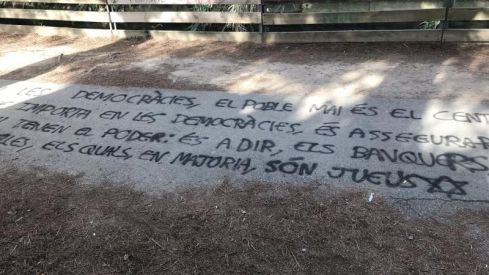 LES DEMOCRÀCIES, EL POBLE MAI ÉS EL CENT
IMPORTA EN LES DEMOCRÀCIES, ÉS ASSEGURAR
TENEN EL PODER: ÉS A DIR, ELS BANQUERS
ELS QUALS, EN MAJORIA, SÓN JUEUS ✡✡